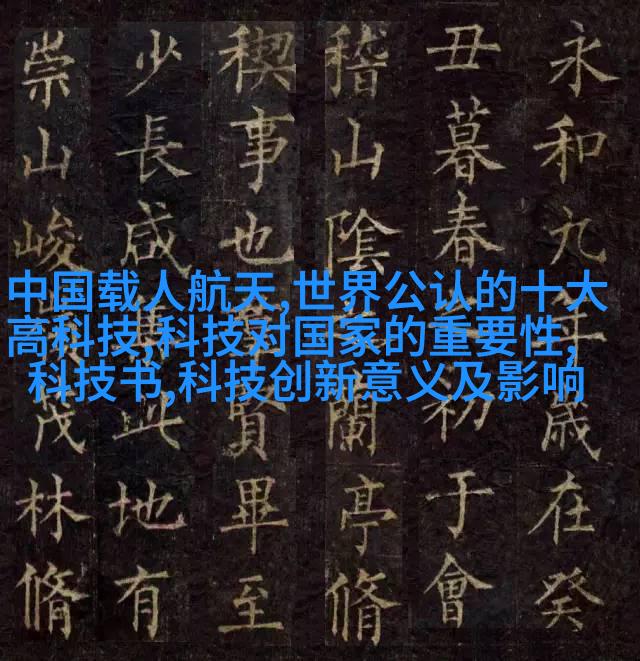 中国载人航天,世界公认的十大
高科技,科技对国家的重要性,
科技书,科技创新意义及影响
永和九年歲在癸
丑暮春初于會
稽山陰蘭亭脩
禊事也賢畢至
少長咸集此地有
崇山峻茂林脩